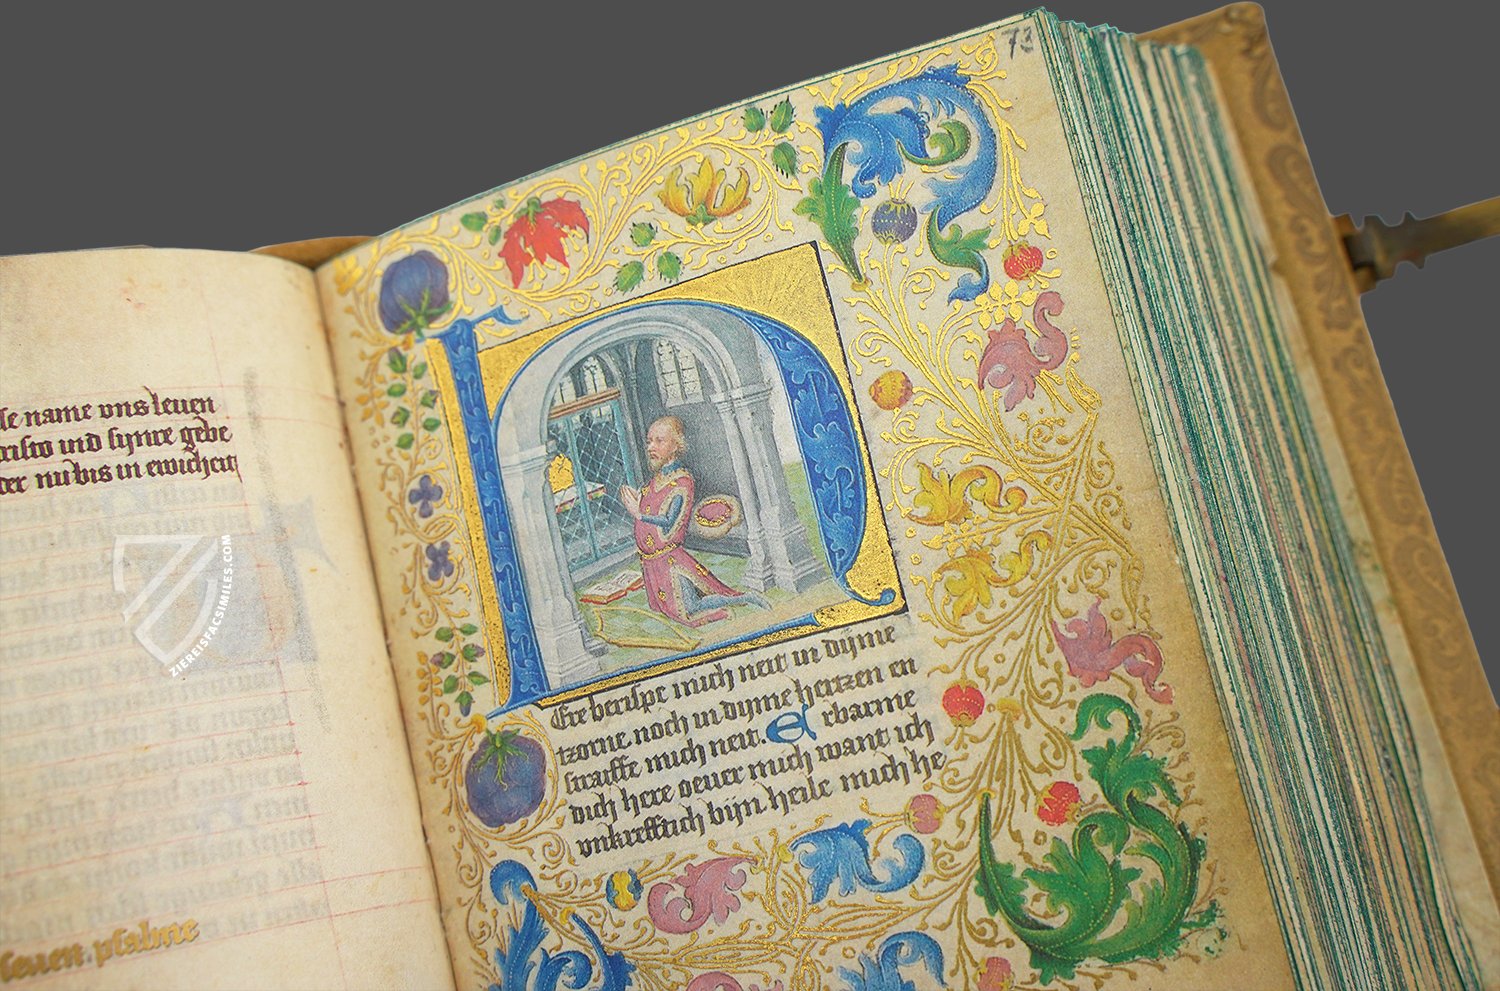 se name vns leuen
cristo ind synre gebe
der nu bis in ewicheit
seuen psalme
73
Ere berispe mich neit in dijme
tzorne noch in dijme hertzen en
straiffe mich neit. Erbarme
dich here oeuer mich want ich
vnkrefftich bijn heile mich he
ZIEREISFACSIMILES.COM